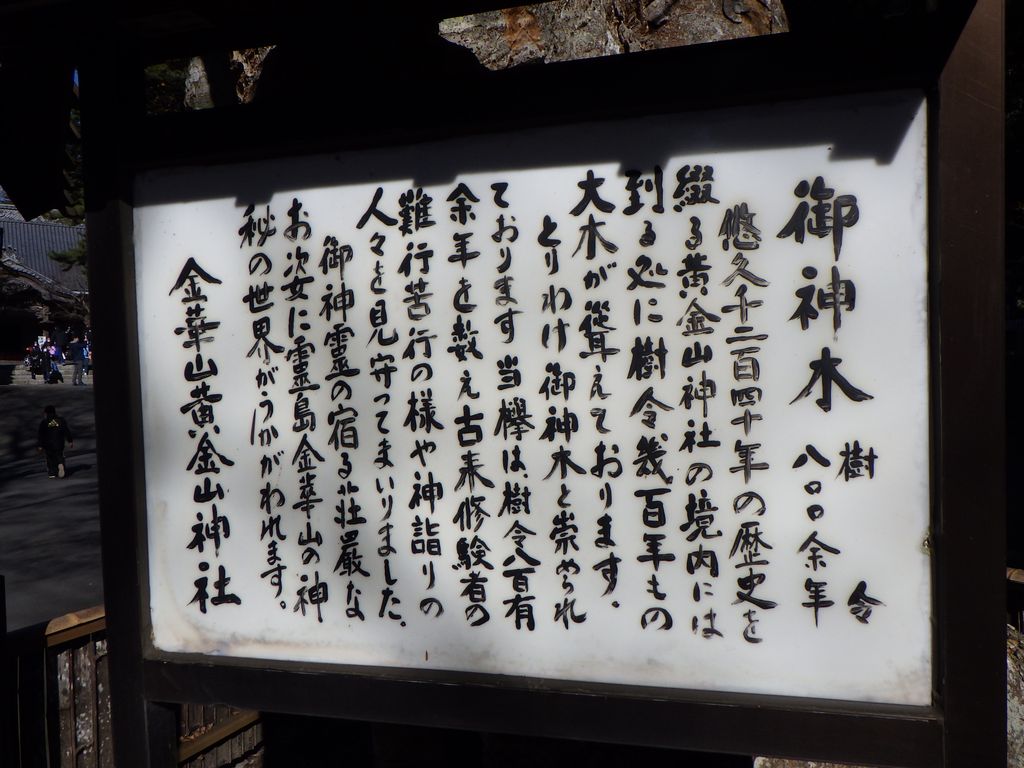 御神木
樹令
八〇〇余年
悠久千二百四十年の歴史を
綴る黄金山神社の境内には
到る処に樹令幾百年もの
大木が聳えております。
とりわけ御神木と崇められ
ております当欅は、樹令八百有
余年を数え古来修験者の
難行苦行の様や神詣りの
人々を見守ってまいりました。
御神霊の宿る荘厳な
お姿に霊島金華山の神
秘の世界がうかがわれます。
金華山黄金山神社